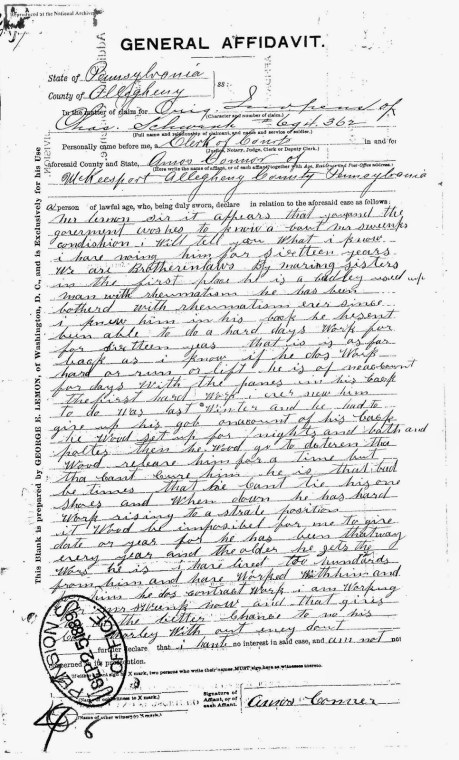 Reproduced at the National Archives
GENERAL AFFIDAVIT.
State of Pennsylvania
County of Allegheny ss:
In the matter of claim for Orig. Inv pens of
(Character and number of claim.)
Chas. Schwenk Ctf. 362
(Full name and relationship of claimant, and rank and service of soldier.)
Personally came before me, a Clerk of Court in and for
(Justice, Notary, Judge, Clerk or Deputy Clerk.)
aforesaid County and State, Amos Connor of
McKeesport Allegheny County Pennsylvania
a person of lawful age, who, being duly sworn, declare in relation to the aforesaid case as follows:
Mr lemon sir it appears that you and the
goverment woshes to know a bout mr swenks
condishion i Will tell you What i know
i have noing him for sixtteen years
We are Brotherinlaws By maring sisters
in the first place he is a badley used up
man with rheumatism he has been
botherd with rheumatism ever since
i knew him in his back he hesent
been able to do a hard days Work for
for sixtteen yeas that is is as far
back as i know if he dos Work
hard or run or lift he is of no account
for days With the panes in his back
the first hard Work i ever new him
to do Was last Winter and he had to
give up his job onacount of his back
he Wood set up for nights and bath and
poltes then he Wood go to
Wood releave him for a time but
tha Cant Cure him he is that bad
be times that he Cant tie his one
shoes and When down he has hard
Work rising to a strate position
it Wood be imposibel for me to give
date or year for he has been that way
every year and the older he gets the
Wors he is i have lived too hundards
from him and have Worked With him and
him he dos contract Work i am Working
mr swenk now and that gives
the better Chance to no his
With out eney dout
further declare that i have no interest in said case, and am not
concerned in its prosecution.
If affiant sign by X mark, two persons who write their names MUST sign here as witnesses hereto.
(Name of other witness to X mark.)
Signature of
Affiant, or of
each Affiant.
Amos Conner
This Blank is prepared by GEORGE E. LEMON, of Washington, D. C., and is Exclusively for his Use
PENSION OFFICE
SEP 25 1889